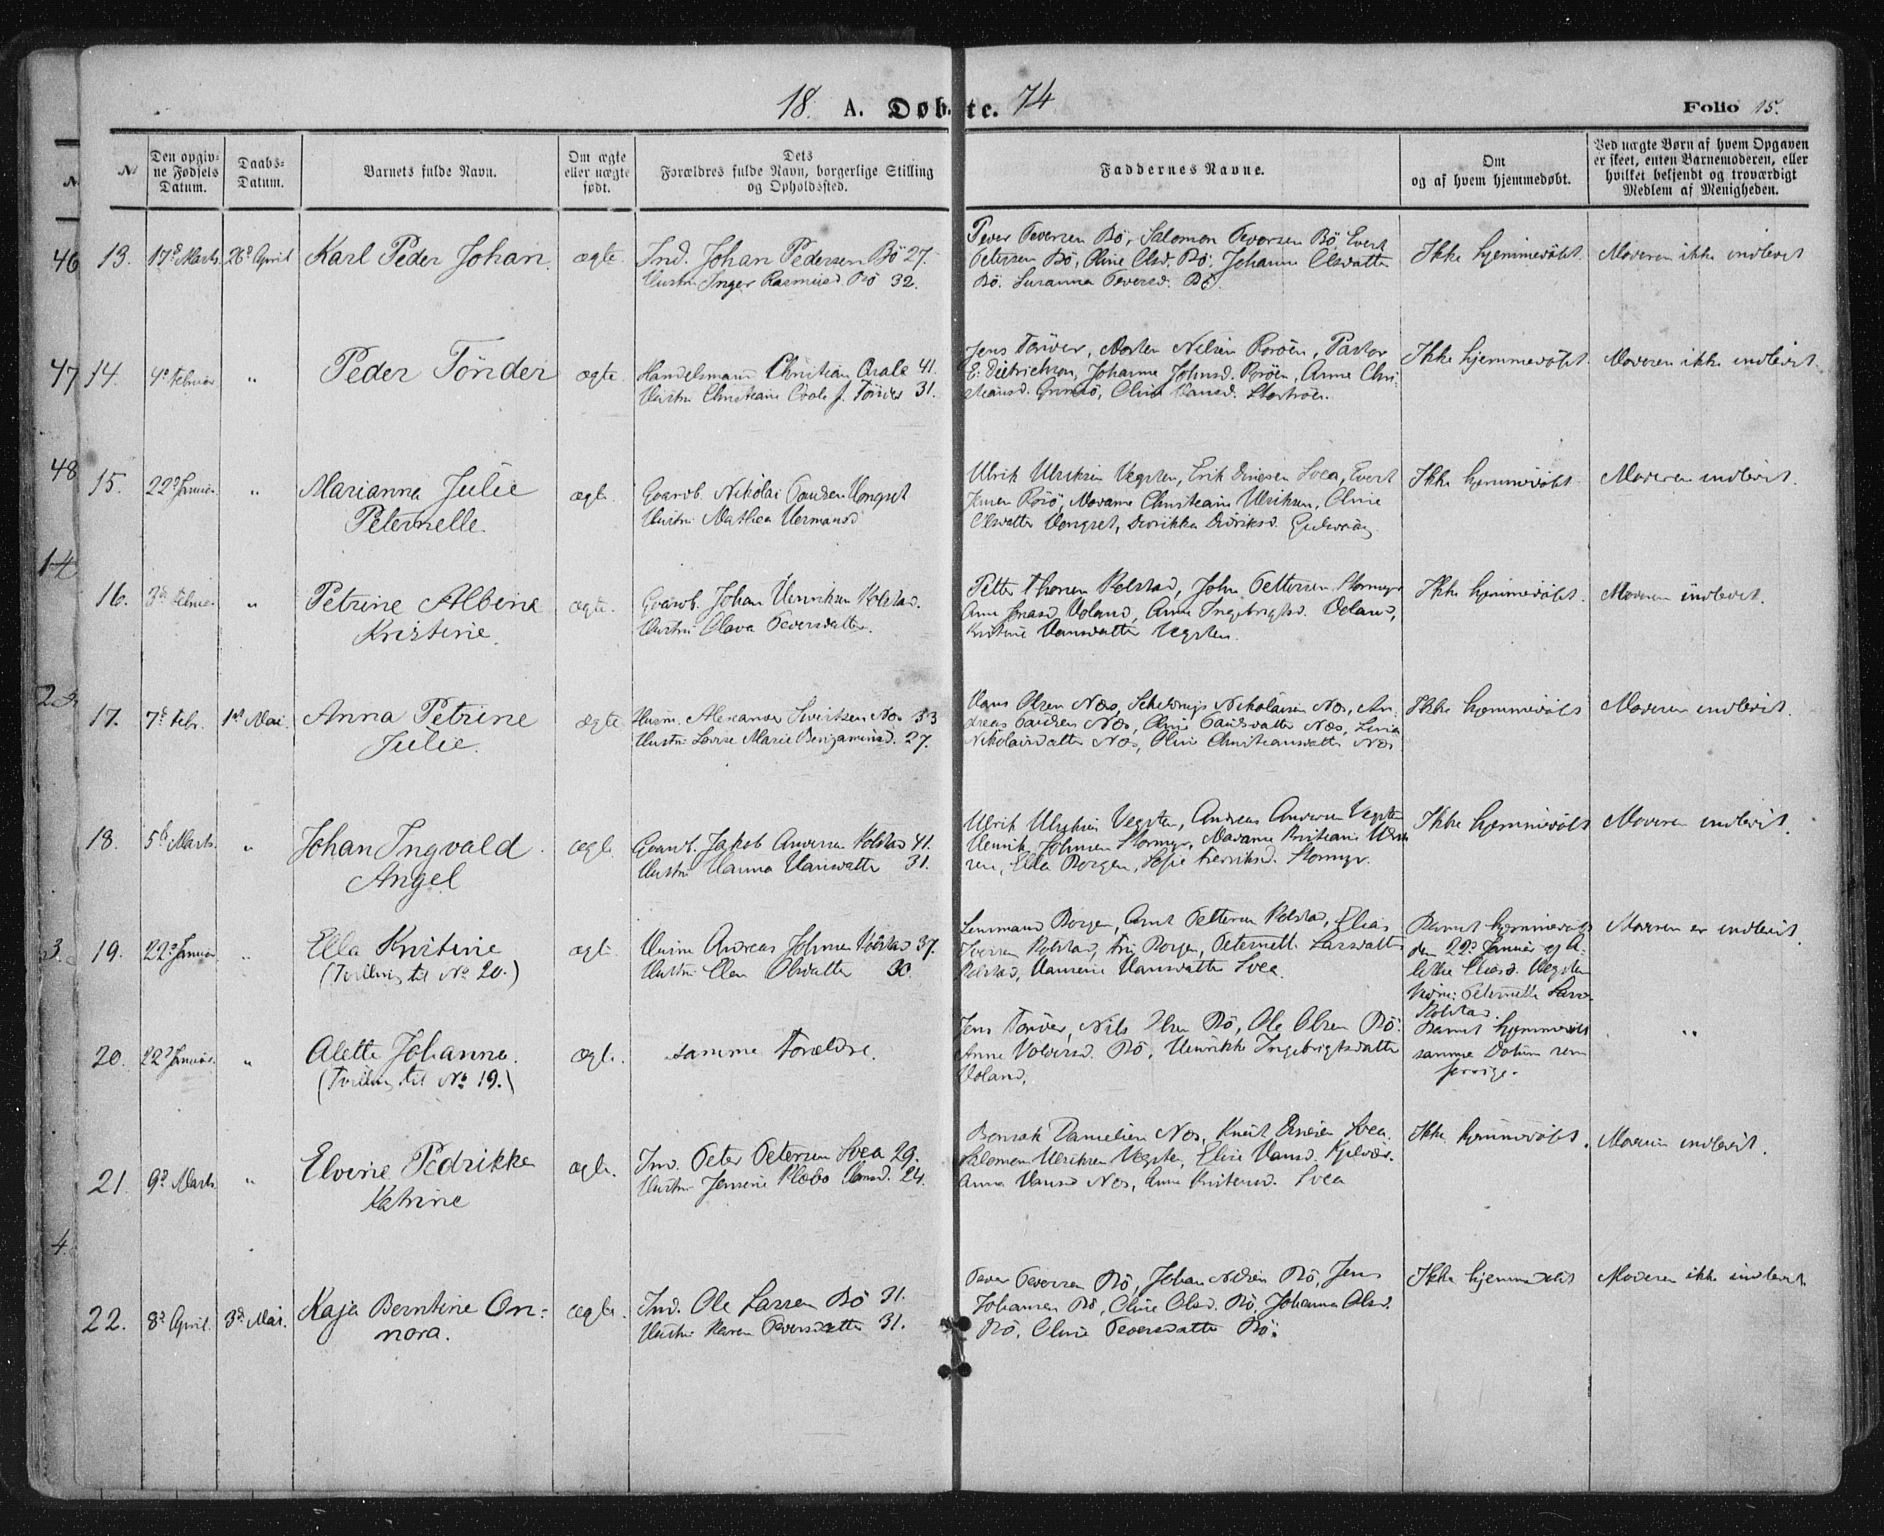 18 A. Døbte. 74
Folio 15.
№
Den opgivne Fødsels Datum.
Daabs-Datum.
Barnets fulde Navn.
Om ægte eller uægte født.
Dets Forældres fulde Navn, borgerlige Stilling og Opholdssted.
Faddernes Navne.
Om og af hvem hjemmedøbt.
Ved uægte Børn af hvem Opgaven er skeet, enten Barnemoderen, eller hvilket bekjendt og troværdigt Medlem af Menigheden.
46
13. 17d Marts 26d April Karl Peder Johan. ægte. Ind. Johan Pedersen Bö 27.
Hustru Inger Rasmusd. Bö 32.
Peder Pedersen Bö, Salomon Pedersen Bö, Evert
Petersen Bö, Oline Olsd. Bö, Johanna Olsdatter
Bö. Susanna Pedersd. Bö.
Ikke hjemmedöbt. Moderen ikke indlevet
47
14. 4d Februar " Peder Tönder ægte. Handelsmand Christian Qvale 41.
Hustru Christiane Qvale f. Tönder 31.
Jens Tönder, Morten Nelsen Roröen, Pastor
E. Dietrichson, Johanna Johnsd. Roröen, Anne Chri-
stiansd. Grimsö, Oline Hansd.
Ikke hjemmedöbt. Moderen ikke indlevet.
48
15. 22d Januar " Marianna Julie
Peternelle.
ægte. Gaardb. Nikolai Paulsen Hongset
Hustru Mathea Hermansd
Ulrik Ulriksen Vegsten, Erik Svea, Evert
Jensen Rörö, Madame Christiane Ulriksen, Oline
Olsdatter Hongset, Didriksd.
Ikke hjemmedöbt. Moderen indlevet.
14
16. 3de Februar " Petrine Albine
Kristine.
ægte. Gaardb. Johan Henriksen Rolstad.
Hustru Olava Pedersdatter.
Petter Thorsen Rolstad, John Pettersen Stormyr
Anne Jonasd Voland, Anne Ingebrigtsd. Voland,
Kristine Hansdatter Vegsten.
Ikke hjemmedöbt. Moderen indlevet.
2
17. 7d Febr. 1st Mai Anna Petrine
Julie.
ægte Husm. Alexander Sivertsen Næs 33
Hustru Lovise Marie Benjaminsd. 27.
Hans Olsen Næs, Nikolaisen Næs, An-
dreas Paulsen Næs, Oline Paulsdatter Næs,
Nikolaisdatter Næs, Oline Christiansdatter Næs
Ikke hjemmedöbt Moderen indlevet.
18. 5te Marts " Johan Ingvald
Angel
ægte. Gaardb. Jakob Andersen Rolstad 41.
Hustru Hanna Hansdatter 31.
Ulrik Ulriksen Vegsten, Andreas Andersen Vegsten
Henrik Johnsen Stormyr, Madame Kristiane Ulrik-
sen, Ella Borgen, Sofie Fredriksd. Stormyr.
Ikke hjemmedöbt Moderen indlevet.
3.
19. 22d Januar " Ella Kristine
(Tvilling til No 20.)
ægte. Husm Andreas Johnsen Rolstad 37.
Hustru Elen Olsdatter 30.
Lensmand Borgen, Arnt Petersen Rolstad, Elias
Iversen Rolstad, Borgen, Peternelle Larsdatter
Rolstad, Hansine Hansdatter Svea.
Barnet hjemmedöbt
den 22d Januar af A-
Eliasd. Vegsten
Vidne: Peternelle Larsd.
Rolstad.
Moderen er indlevet.
20. 22d Januar " Alette Johanna.
(Tvilling til No 19.)
ægte. samme Forældre.
Jens Tönder, Nils Olsen Bö, Ole Olsen Bö.
Anne Bö, Henrikke Ingebrigtsdatter
Voland,
Barnet hjemmedöbt
samme Datum som
forrige.
"
21. 9d Marts " Elverie Pedrikke
Katrine
ægte. Ind. Peter Petersen Svea 29.
Hustru Jensine Hansd. 24.
Bonsak Danielsen Næs, Knut Svea
Salomon Ulriksen Vegsten, Eline Hansd.
Anna Hansd Næs, Anne Kristensd. Svea
Ikke hjemmedöbt. Moderen indlevet.
4.
22. 8d April. 3d Mai. Kaja Berntine On-
nora.
ægte. Ind. Ole Larsen Bö 31.
Hustru Karen Pedersdatter 31.
Peder Pedersen Bö, Johan Nelsen Bö, Jens
Johansen Bö, Oline Olsd. Bö, Johanna Olsd.
Bö, Oline Pedersdatter Bö.
Ikke hjemmedöbt Moderen ikke indlevet